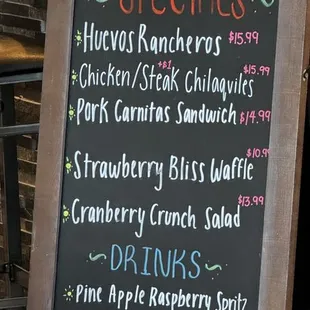 SPECIALS
Huevos Rancheros $15.99
+$1
Chicken/Steak Chilaqviles $15.99
Pork Carnitas Sandwich $14.99
Strawberry Bliss Waffle $10.9
Cranberry Crunch Salad $13.99
DRINKS
Pine Apple Raspberry Spritz